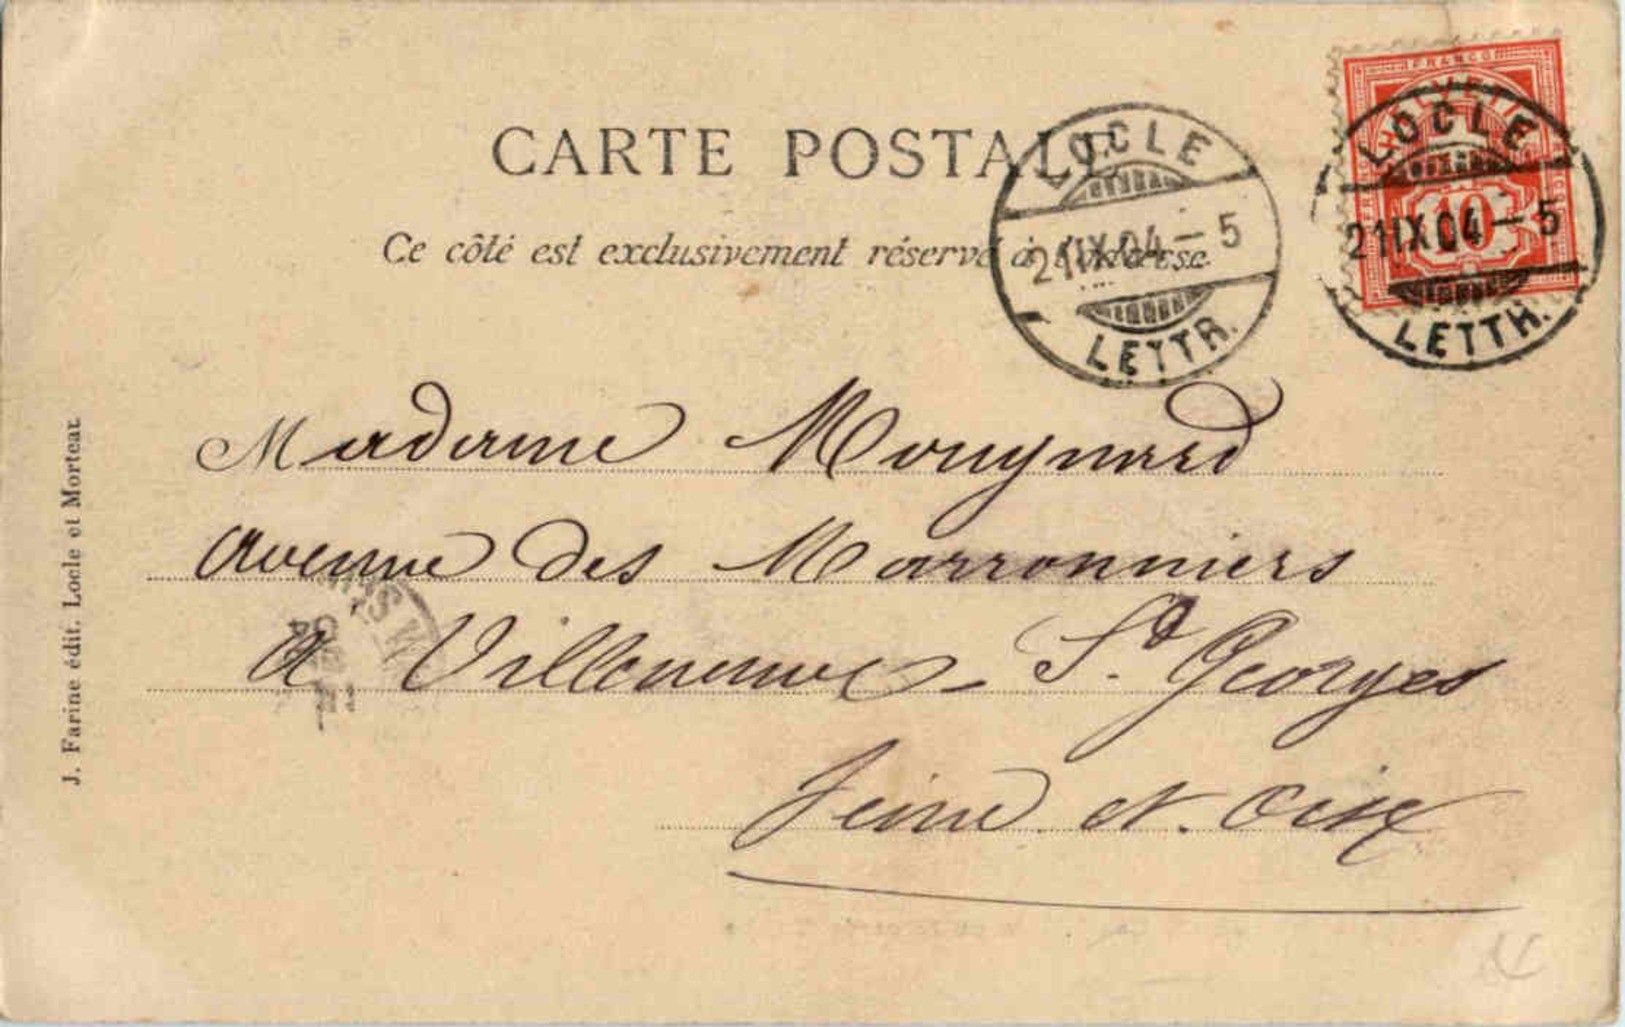 CARTE POSTALE
Ce côté est exclusivement réservé à l'adresse.
LOCLE
21 IX 04 – 5
LETTR.
FRANCO
HELVETIA
10
LOCLE
21 IX 04 – 5
LETTR.
Madame Mougnard
Avenue des Marronniers
à Villeneuve - St. Georges
Seine et Oise
J. Farine édit. Locle et Morteau